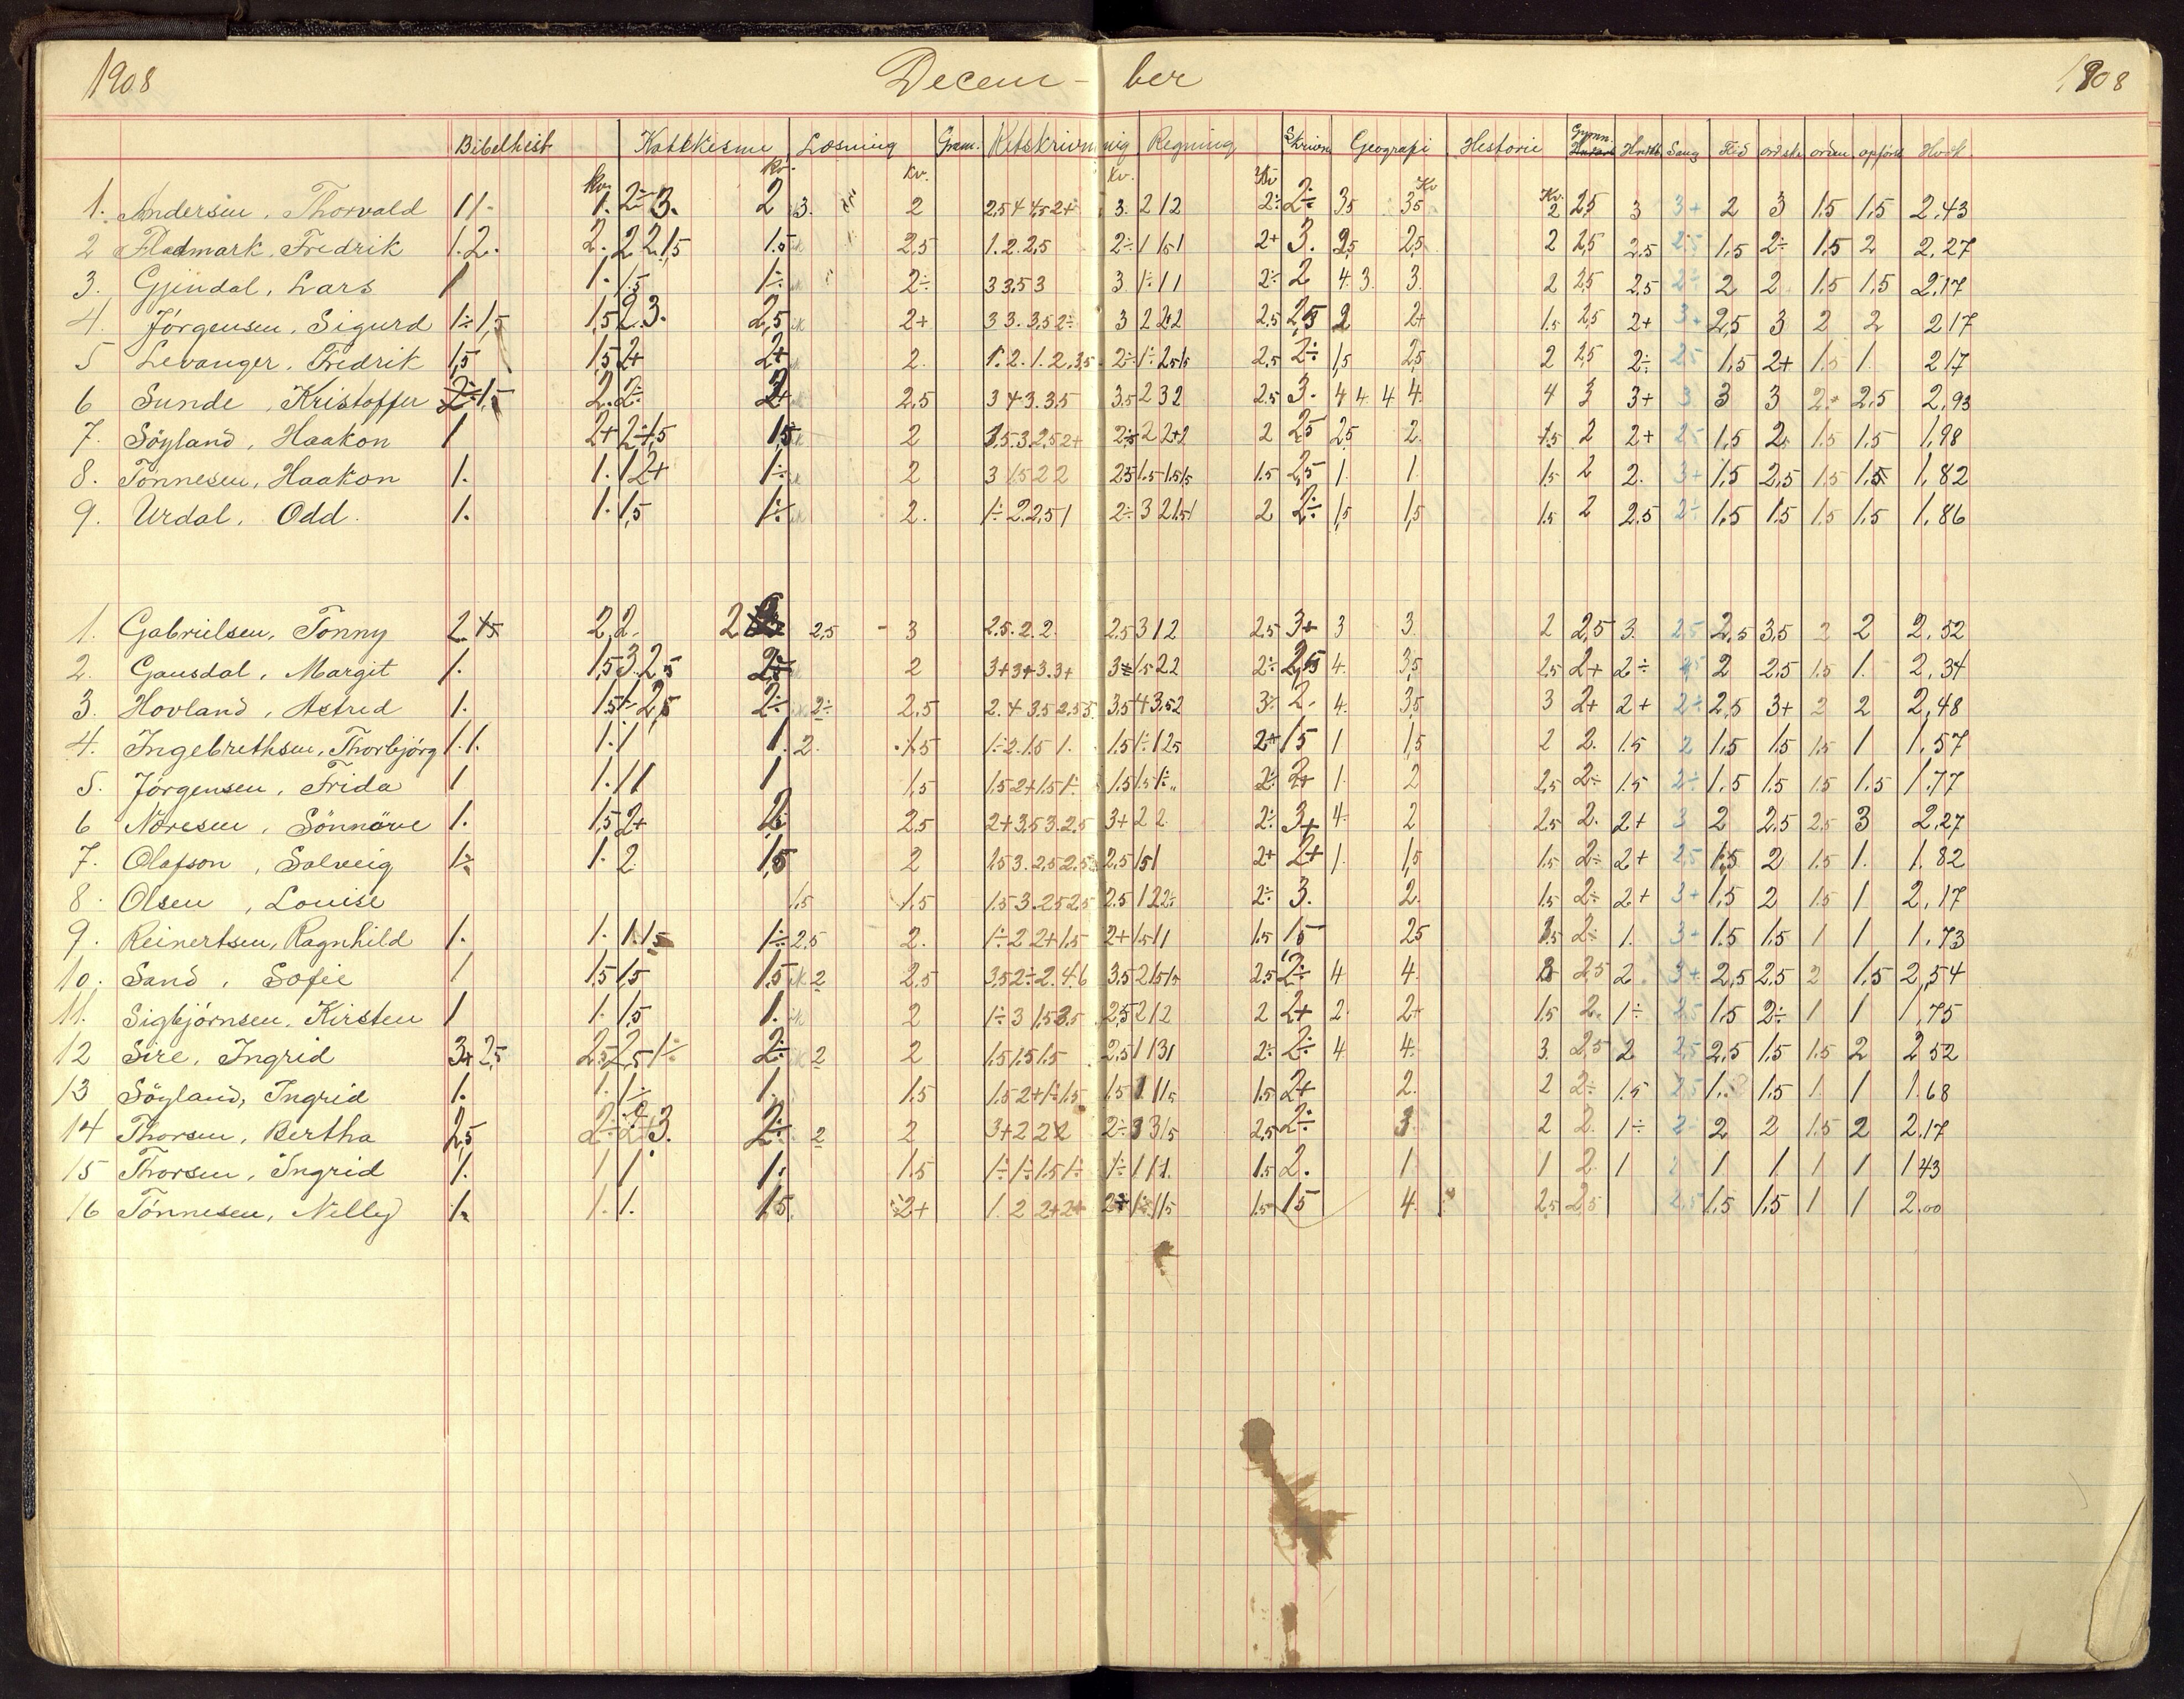 1908 Decem- ber 1908
Bibelhist Katekisme Læsning Gram. Retskrivning Regning Skrivn Geografi Historie Gymn. Haandb Sang Flid ordsk orden opførs Hovk.
kv. kv. kv. kv. Kv Kv Kv.
1. Andersen, Thorvald 1 1. 1. 2÷ 3. 2 3. 2 2,5 4 4,5 2+ 3. 2 1 2 2÷ 2÷ 3,5 3,5 2 2,5 3 3+ 2 3 1.5 1.5 2.43
2 Fladmark, Fredrik 1.2. 2. 2 2 1,5 1.5 2,5 1.2.2,5 2÷ 1 1,5 1 2+ 3. 2,5 2,5 2 2,5 2.5 2.5 1.5 2÷ 1.5 2 2.27
3. Gjendal, Lars 1 1. 1.5 1÷ 2÷ 3 3,5 3 3 1÷ 1 1 2÷ 2 4.3. 3. 2 2,5 2.5 2÷ 2 2 1.5 1.5 2.17
4. Jörgensen, Sigurd 1÷ 1,5 1,5 2.3. 2,5 2+ 3 3. 3,5 2÷ 3 2 2+2 2.5 2,5 2 2+ 1.5 2,5 2+ 3+ 2,5 3 2 2 2 17
5 Levanger, Fredrik 1,5 1,5 2+ 2+ 2. 1.2.1.2,3,5 2÷ 1÷ 2,5 1,5 2,5 2÷ 1,5 2,5 2 2,5 2÷ 2.5 1.5 2+ 1.5 1. 2 17
6 Sunde, Kristoffer 2÷ 1,5 2. 2÷ 2+ 2,5 3 4 3.3,5 3,5 2 3 2 2.5 3. 4 4 4 4. 4 3 3+ 3. 3 3 2÷ 2,5 2,93
7. Söyland, Haakon 1 2+ 2÷ 1,5 1,5 2 3,5.3.2,5 2+ 2÷ 2 2+2 2 2,5 2,5 2. 1.5 2 2+ 2.5 1.5 2. 1.5 1.5 1,98
8. Tönnesen, Haakon 1. 1. 1 2+ 1÷ 2 3 1.5 2 2 2.5 1.5 1.5 1.5 1.5 2,5 1. 1. 1.5 2 2. 3+ 1.5 2,5 1.5 1.5 1.82
9. Urdal, Odd. 1. 1. 1,5 1÷ 2. 1÷ 2.2,5 1 2÷ 3 2 1.5 1 2 2÷ 1,5 1,5 1.5 2 2.5 2÷ 1.5 1.5 1.5 1.5 1.86
1. Gabrielsen, Tonny 2 1,5 2,2. 2 2,5 - 3 2.5.2.2. 2.5 3 1 2 2.5 3+ 3 3. 2 2,5 3. 2.5 2.5 3.5 2 2 2.52
2. Gausdal, Margit 1. 1,5 3.2,5 2÷ 2 3+3+3.3+ 3÷ 1.5 2 2 2÷ 2,5 4. 3,5 2,5 2+ 2÷ 2.5 2 2.5 1.5 1. 2.34
3. Hovland, Astrid 1. 1.5 1÷ 2,5 2÷ 2÷ 2.5 2.4 3.5 2,5 3. 3.5 4 3.5 2 3÷ 2. 4. 3,5 3 2+ 2+ 2÷ 2,5 3+ 2 2 2.48
4. Ingebrethsen, Thorbjörg 1.1. 1. 1 1. 2. 1.5 1÷ 2.1.5 1. 1.5 1÷ 1 2,5 2+ 1.5 1 1,5 2 2. 1.5 2 1.5 1.5 1.5 1 1.57
5. Jörgensen, Frida 1 1. 1 1 1 1.5 1.5 2+ 1.5 1÷ 1.5 1.5 1÷ 2÷ 2+ 1. 2 2.5 2÷ 1.5 2÷ 1.5 1.5 1.5 1.5 1.77
6 Nöresen, Sönnöve 1. 1,5 2+ 2 2,5 2+ 3.5 3.2.5 3+ 2 2. 2÷ 3+ 4. 2 2,5 2. 2+ 3 2 2.5 2.5 3 2.27
7. Olafson, Solveig 1÷ 1. 2 1,5 2 1.5 3.2.5 2.5 2.5 1.5 1 2+ 2+ 1. 1,5 1.5 2÷ 2+ 2.5 1.5 2 1.5 1. 1.82
8. Olsen, Louise 1.5 1.5 1.5 3.2.5 2.5 2.5 1 2 2÷ 2÷ 3. 2. 1.5 2÷ 2+ 3+ 1.5 2 1.5 1 2.17
9. Reinertsen, Ragnhild 1. 1. 1.1.5 1÷ 2.5 2. 1÷ 2 2+ 1.5 2+ 1.5 1 1 1.5 1.5 2.5 3.5 2÷ 1. 3+ 1.5 1.5 1 1 1.73
10. Sand, Sofie 1 1,5 1.5 1.5 2 2.5 3.5 2÷ 2.4.6 3.5 2 1.5 1.5 2.5 2÷ 4 4. 2.5 2 3+ 2,5 2,5 2 1.5 2,54
11. Sigbjörnsen, Kirsten 1 1. 1,5 1. 2 1÷ 3 1.5 3.5 2.5 2 1 2 2 2+ 2 2+ 1.5 2. 1÷ 2.5 1.5 2÷ 1 1 1.75
12 Sire, Ingrid 3+ 2,5 2.5 2,5 1÷ 2÷ 2 2 1.5 1.5 1.5 2.5 1 1 3 1 2÷ 2÷ 4 4. 3. 2,5 2 2.5 2.5 1.5 1.5 2 2 52
13 Söyland, Ingrid 1. 1. 1÷ 1. 1.5 1.5 2+ 1÷ 1.5 1.5 1 1 1.5 1.5 2+ 2. 2 2÷ 1.5 2.5 1.5 1.5 1. 1 1.68
14 Thorsen, Bertha 2,5 2÷ 2+ 3. 2÷ 2 2 3+ 2 2 2 2÷ 3 3 1.5 2.5 2÷ 3. 2 2 1÷ 2 2 2 1.5 2 2.17
15 Thorsen, Ingrid 1. 1 1 1. 1.5 1÷ 1÷ 1.5 1÷ 1÷ 1 1 1. 1.5 2. 1 1 2 1 2 1 1 1 1 1 43
16 Tönnesen, Nelly 1. 1. 1. 1.5 2+ 1. 2 2+ 2+ 2+ 1÷ 1 1.5 1.5 1.5 4. 2,5 2,5 2.5 1.5 1.5 1 1 2.00